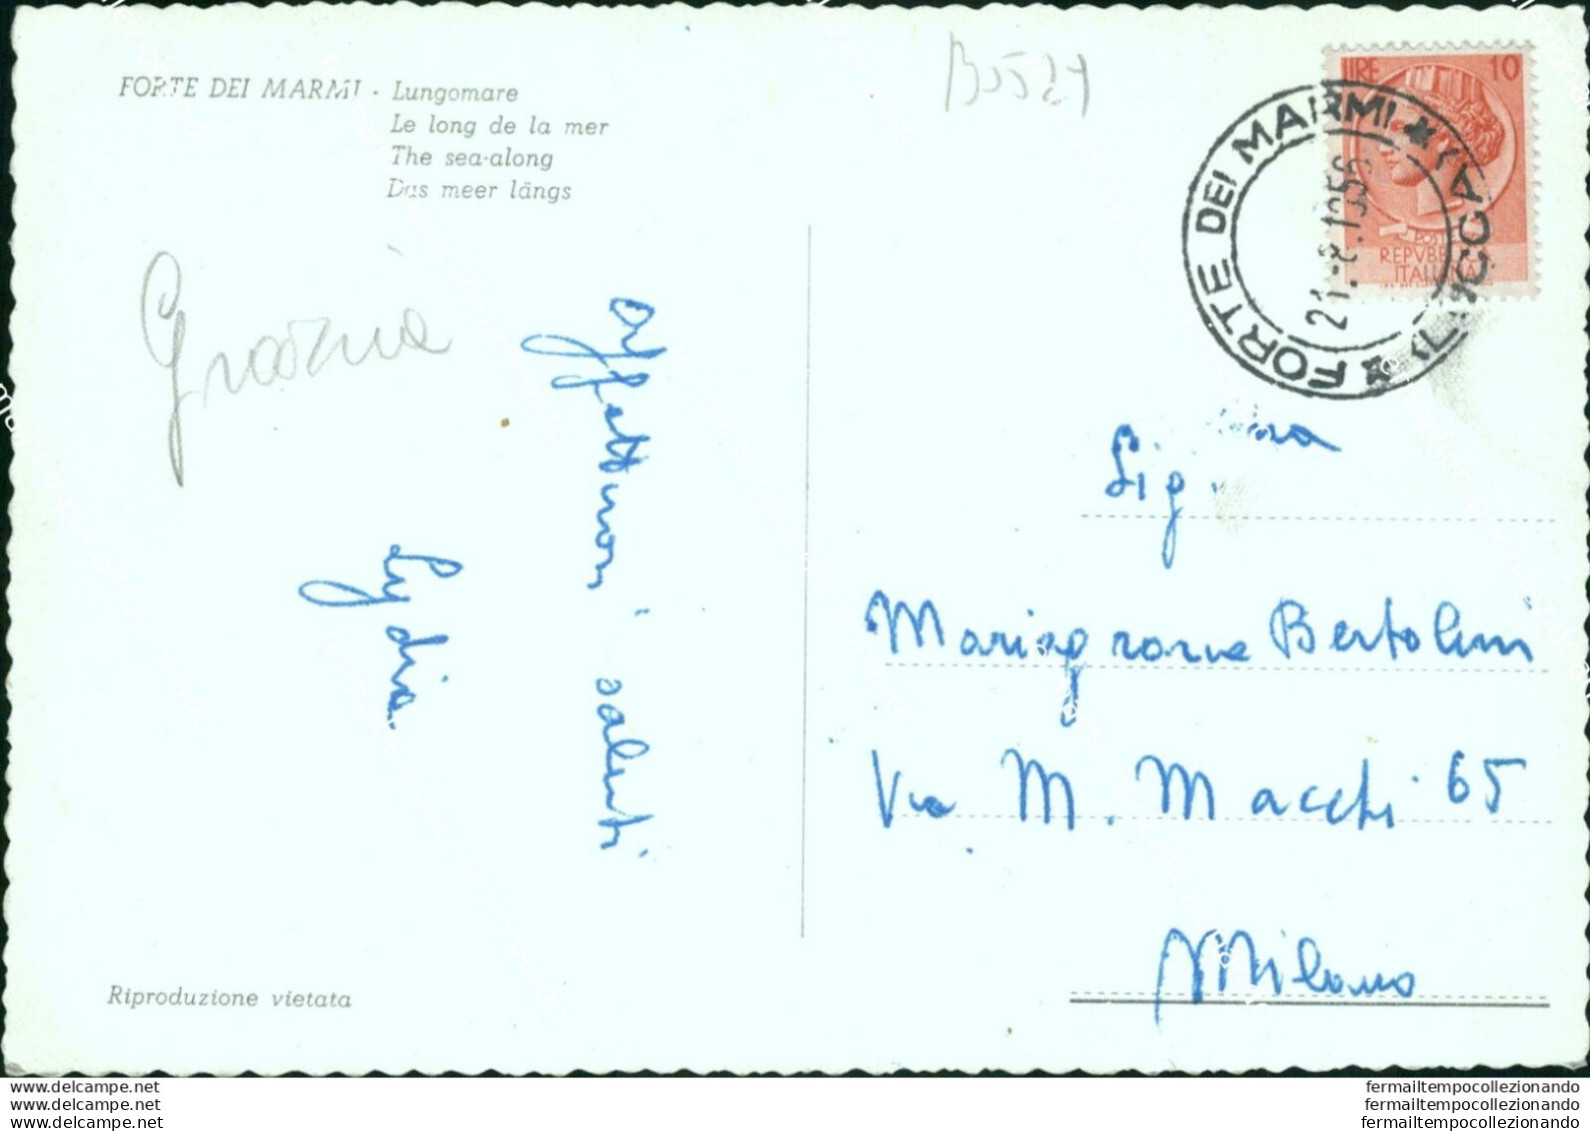 FORTE DEI MARMI - Lungomare
Le long de la mer
The sea-along
Das meer längs
B5521
LIRE 10
POSTE
REPVBBLICA
ITALIANA
FORTE DEI MARMI ★ (LUCCA) ★
21.-8.1956
Grazia
Affettuosi saluti
Lydia
Sig.
Mariagrazia Bertolini
Via M. Macchi 65
Milano
Riproduzione vietata
www.delcampe.net
www.delcampe.net
www.delcampe.net
fermailtempocollezionando
fermailtempocollezionando
fermailtempocollezionando